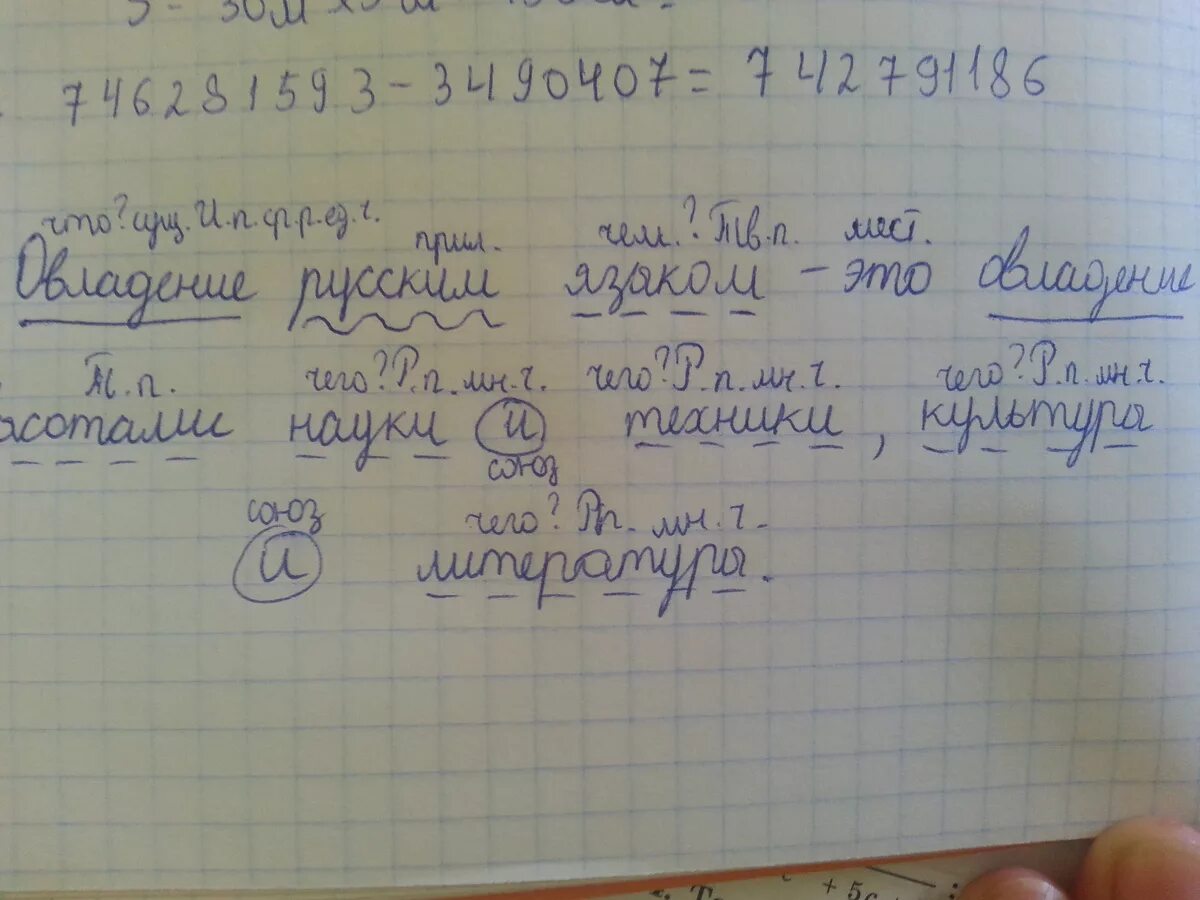 746281593 - 3490407 = 742791186
что? сущ. И.п. ср.р. ед.ч.
прил. чем? Тв.п. мест.
Овладение русским языком - это овладение
Т.п. чего? Р.п. мн.ч. чего? Р.п. мн.ч. чего? Р.п. мн.ч.
сотами науки и техники, культуры
союз
союз чего? Рп. мн.ч.
и литературы.